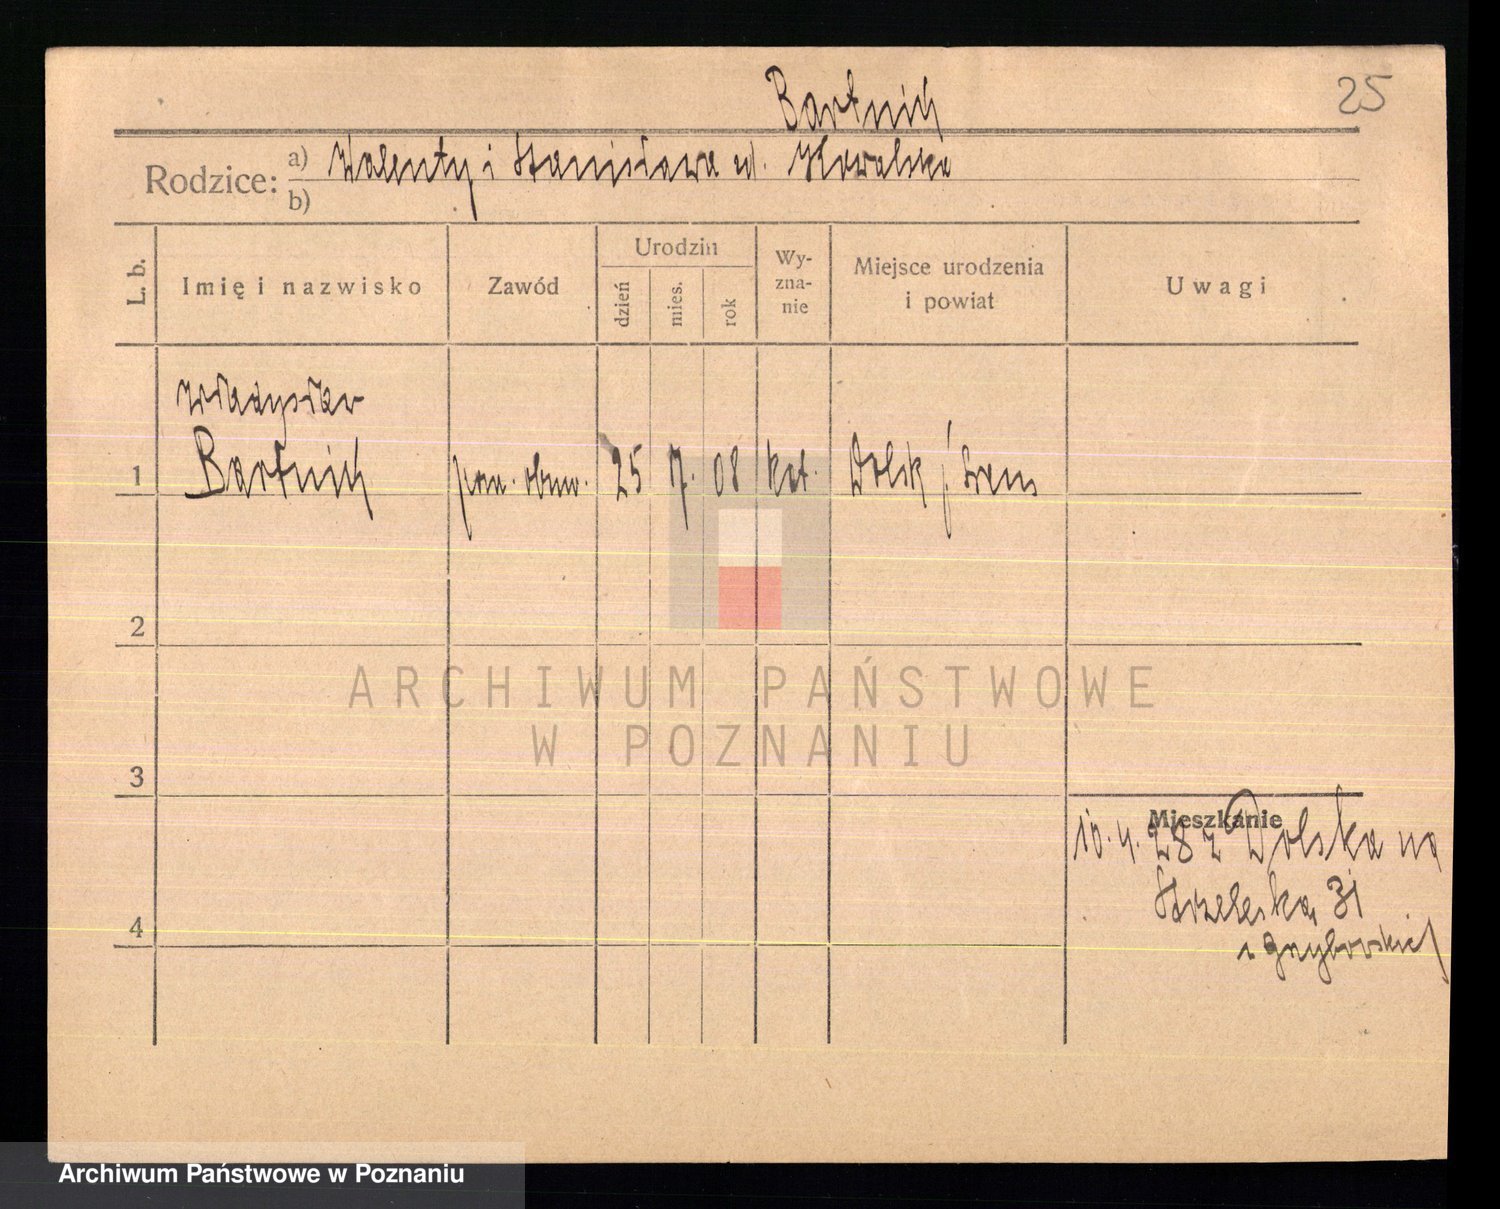 25
Bartnich
Rodzice: a) Walenty i Stanisława ul. Kowalska
b)
L. b. Imię i nazwisko Zawód Urodzin dzień mies. rok Wy-zna-nie Miejsce urodzenia i powiat Uwagi
Władysław
1 Bartnich pom. obuw. 25 7. 08 kat. Dolsk / Śrem
2
ARCHIWUM PAŃSTWOWE
W POZNANIU
3
Mieszkanie
10. 4. 28 z Dolska na
Strzelecka 31
4
Archiwum Państwowe w Poznaniu